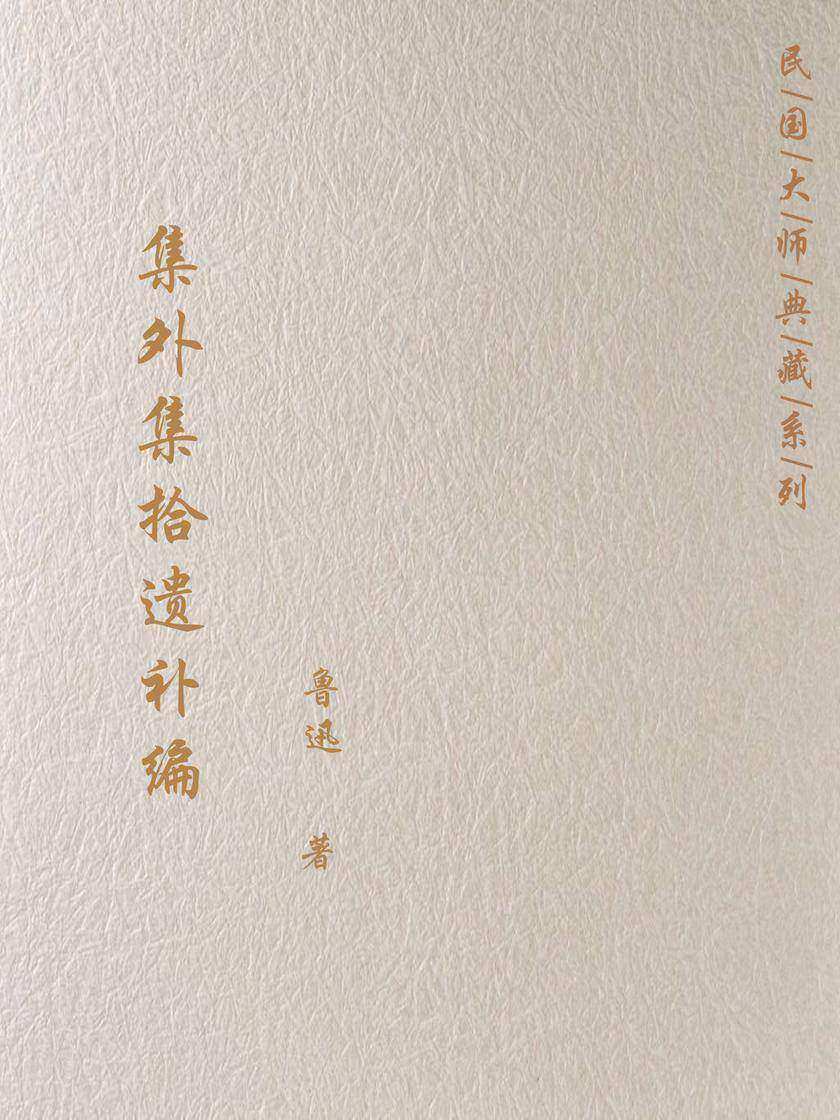 民/国/大/师/典/藏/系/列
集外集拾遗补编
鲁迅 著